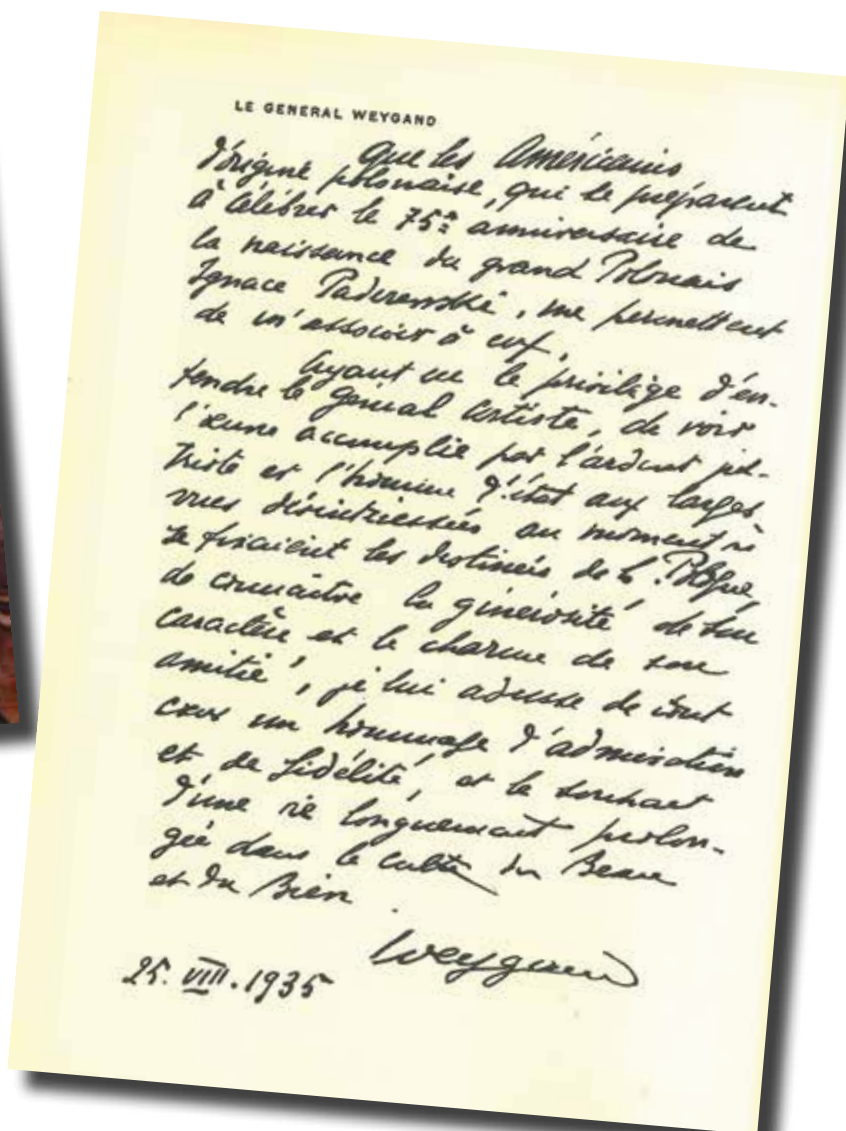 LE GENERAL WEYGAND
Que les Américains
d'origine polonaise, qui se préparent
à célébrer le 75e anniversaire de
la naissance du grand Polonais
Ignace Paderewski, me permettent
de m'associer à eux.
Ayant eu le privilège d'en-
tendre le génial artiste, de voir
l'œuvre accomplie par l'ardent pa-
triote et l'homme d'état aux larges
vues désintéressées au moment où
se fixaient les destinées de la Pologne,
de connaître la générosité de son
caractère et le charme de son
amitié, je lui adresse de tout
cœur un hommage d'admiration
et de fidélité, et le souhait
d'une vie longuement prolon-
gée dans le culte du Beau
et du Bien.
Weygand
25.VIII.1935